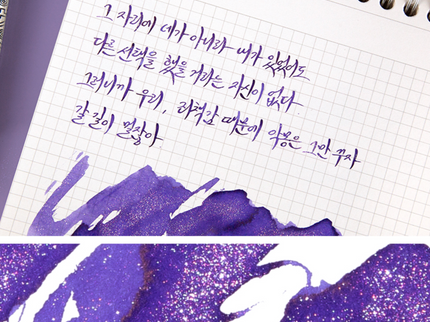 그 자리에 네가 아니라 내가 있었어도
다른 선택을 했을 거라는 자신이 없다.
그러니까 우리, 죄책감 때문에 악몽은 그만 꾸자
갈 길이 멀잖아